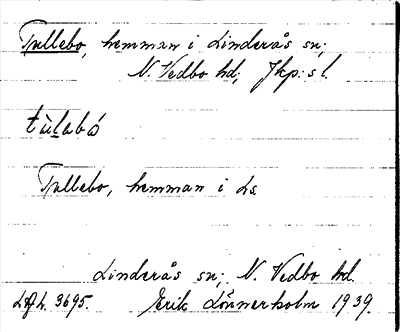 Tullebo, hemman i Linderås sn;
N. Vedbo hd; Jkp:s l.
tùlabó
Tullebo, hemman i Ls
Linderås sn; N. Vedbo hd.
3695. Erik Lönnerholm 1939.